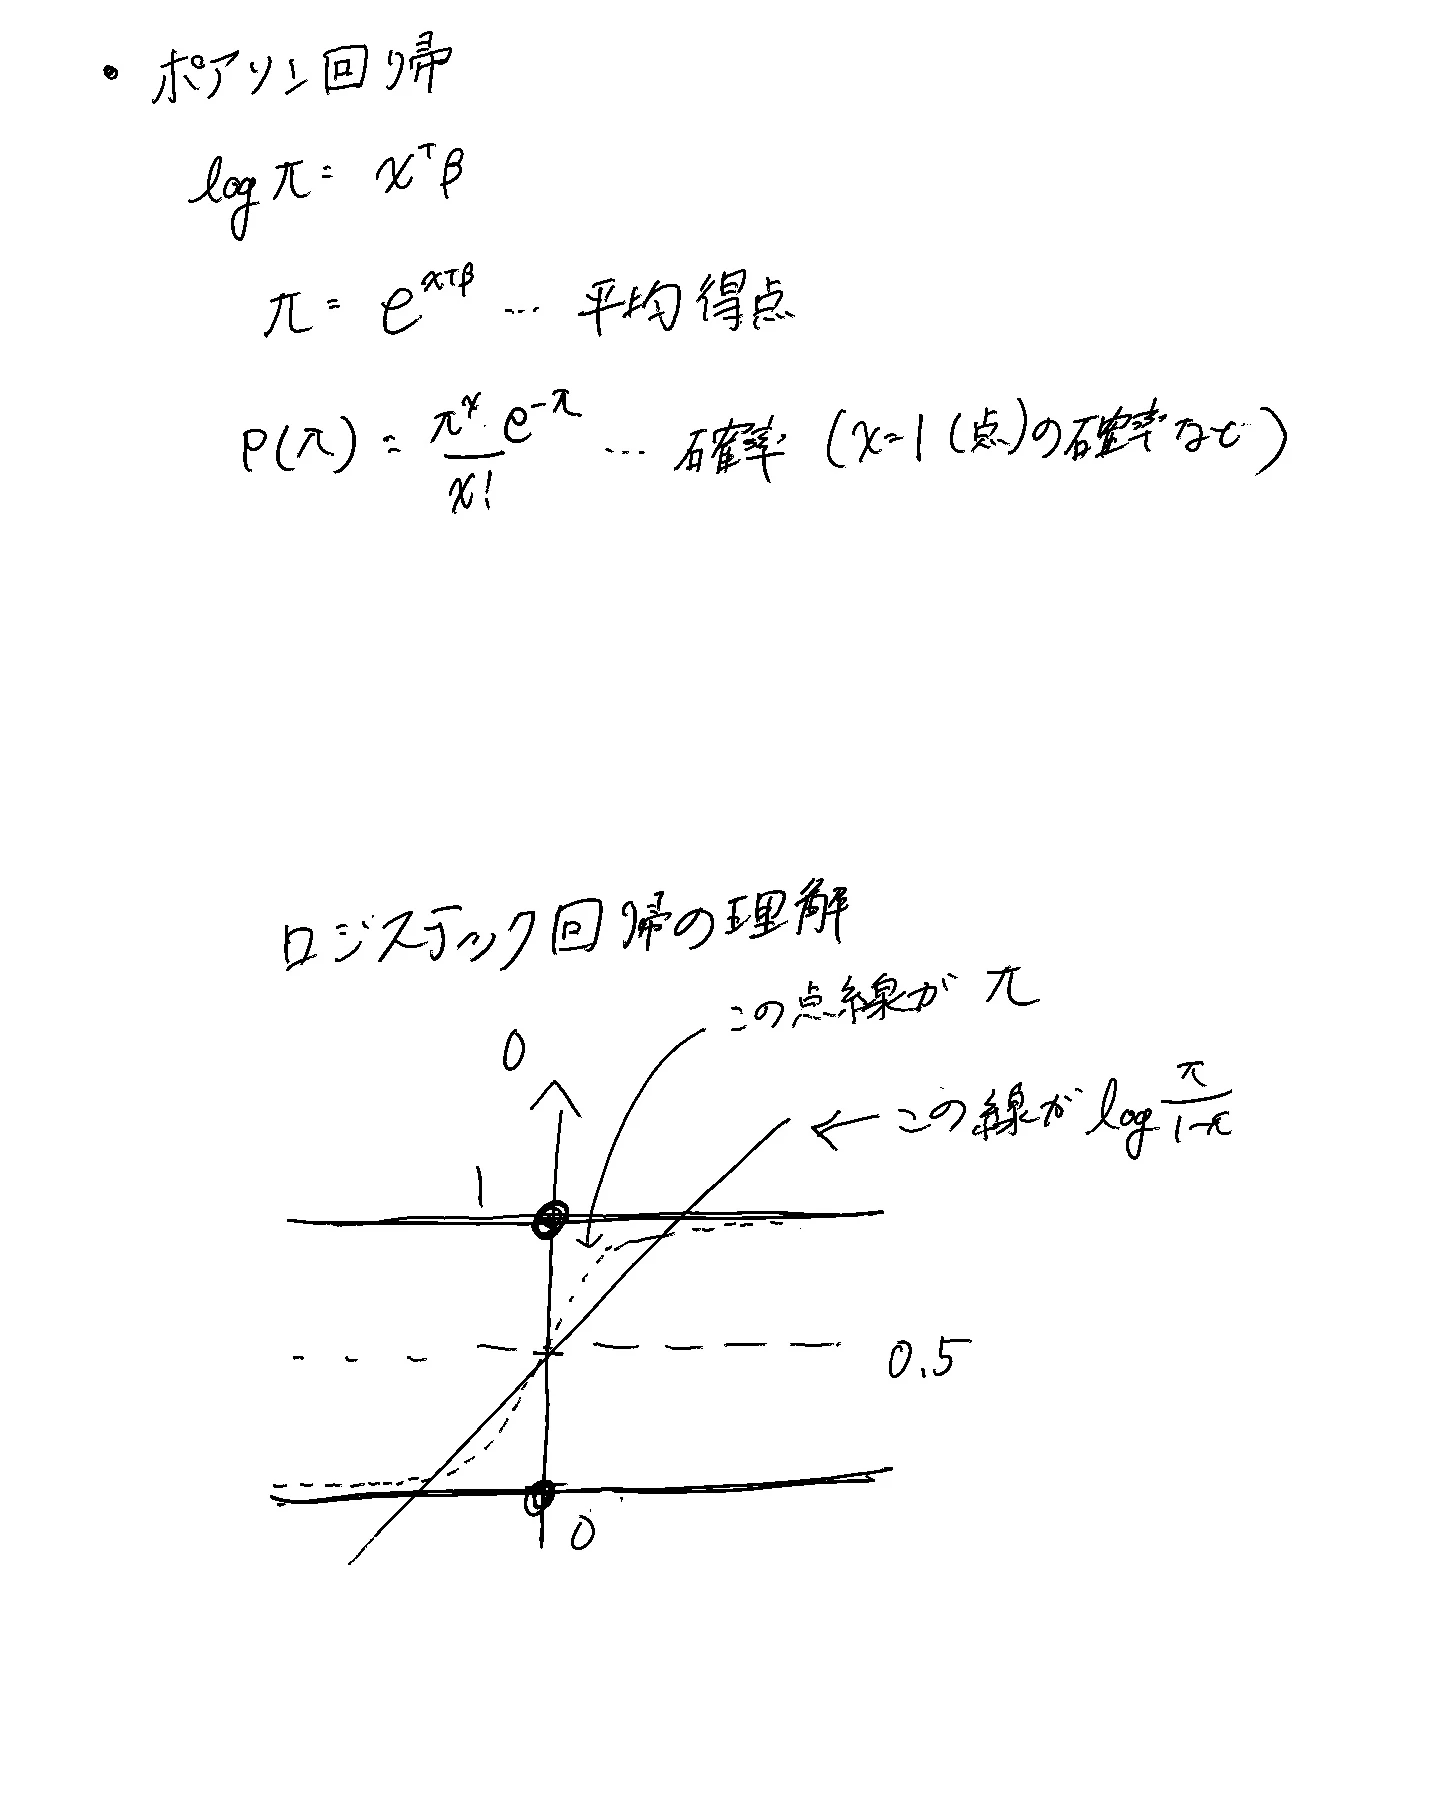 ・ポアソン回帰
log π = x^T β
π = e^{x^T β} … 平均得点
P(π) = \frac{π^x e^{-π}}{x!} … 確率 (x=1(点)の確率など)
ロジスティック回帰の理解
この点線が π
0
この線が log \frac{π}{1-π}
1
0.5
0